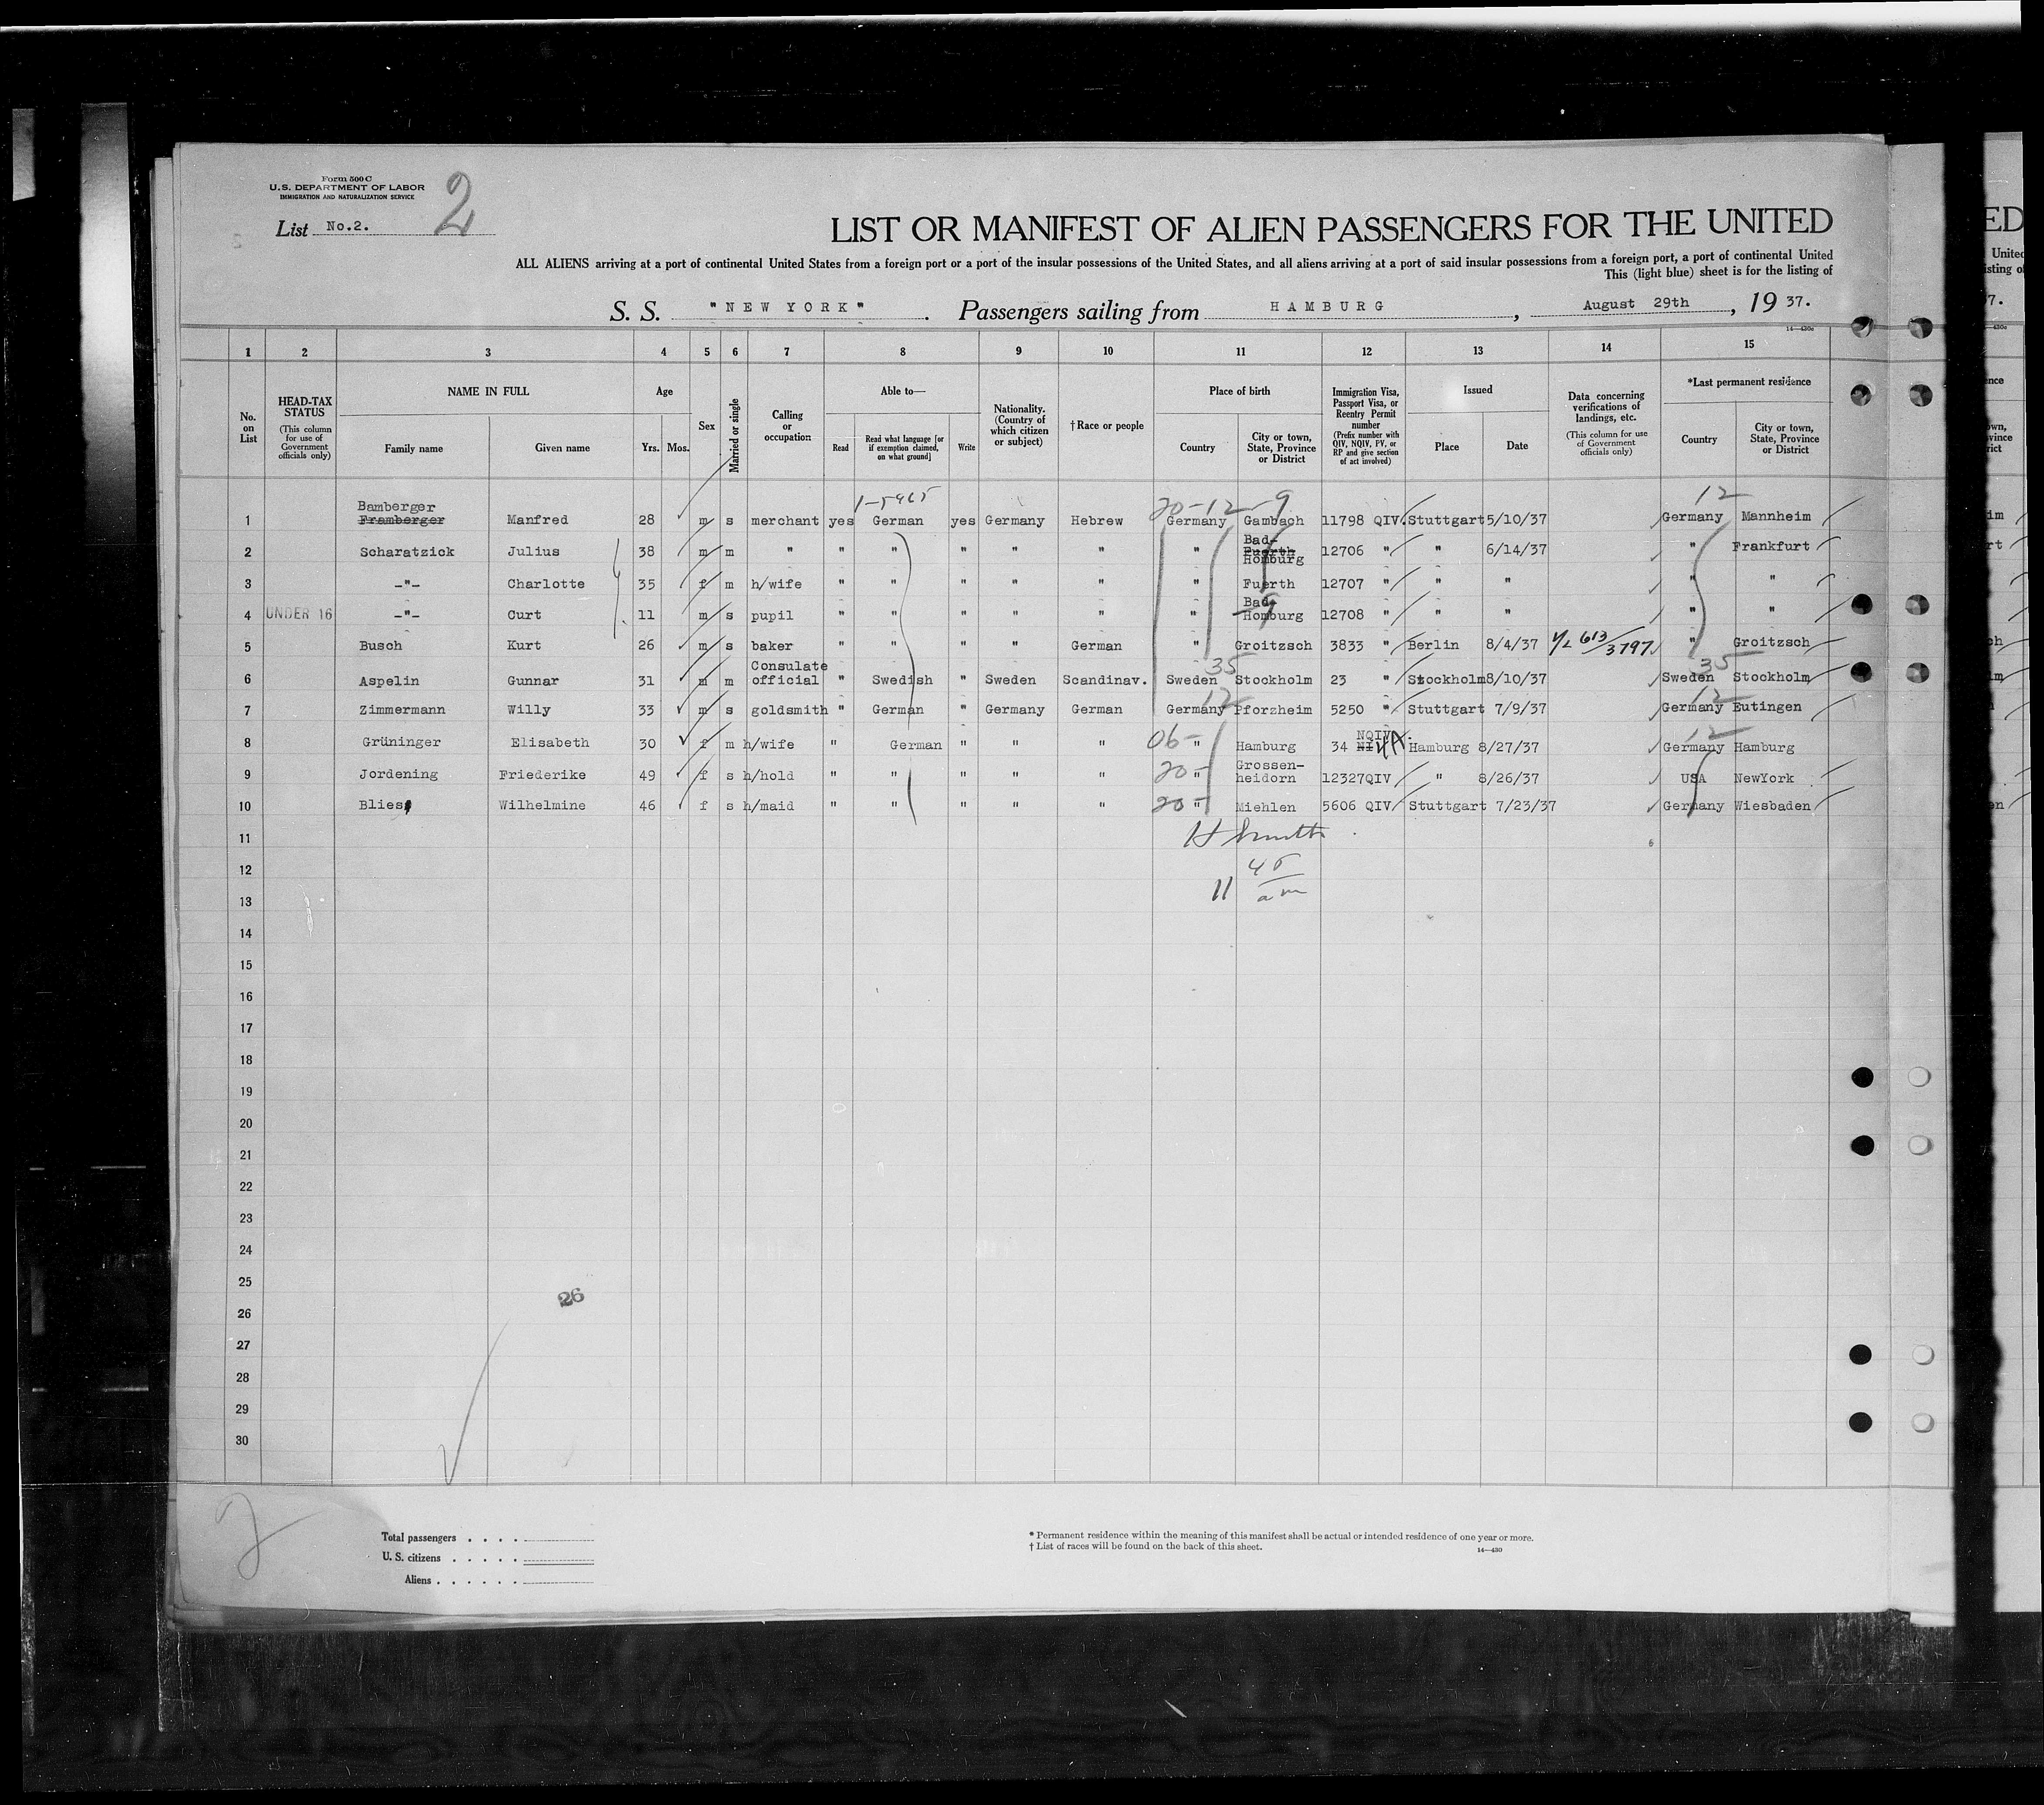 Form 500 C
U.S. DEPARTMENT OF LABOR
IMMIGRATION AND NATURALIZATION SERVICE
List No.2. 2
LIST OR MANIFEST OF ALIEN PASSENGERS FOR THE UNITED
ALL ALIENS arriving at a port of continental United States from a foreign port or a port of the insular possessions of the United States, and all aliens arriving at a port of said insular possessions from a foreign port, a port of continental United
This (light blue) sheet is for the listing of
S. S. "NEW YORK". Passengers sailing from HAMBURG, August 29th, 19 37.
14—430c
1 2 3 4 5 6 7 8 9 10 11 12 13 14 15
No. on List
HEAD-TAX STATUS (This column for use of Government officials only)
NAME IN FULL
Family name Given name
Age
Yrs. Mos.
Sex
Married or single
Calling or occupation
Able to—
Read Read what language [or if exemption claimed, on what ground] Write
Nationality. (Country of which citizen or subject)
†Race or people
Place of birth
Country City or town, State, Province or District
Immigration Visa, Passport Visa, or Reentry Permit number (Prefix number with QIV, NQIV, PV, or RP and give section of act involved)
Issued
Place Date
Data concerning verifications of landings, etc. (This column for use of Government officials only)
*Last permanent residence
Country City or town, State, Province or District
1-5965 20-12-9 12
Bamberger
1 Framberger Manfred 28 m s merchant yes German yes Germany Hebrew Germany Gambach 11798 QIV. Stuttgart 5/10/37 Germany Mannheim
2 Scharatzick Julius 38 m m " " " " " " " Bad- Fuerth Homburg 12706 " " 6/14/37 " Frankfurt
3 -"- Charlotte 35 f m h/wife " " " " " " Fuerth 12707 " " " " "
4 UNDER 16 -"- Curt 11 m s pupil " " " " " " Bad- Homburg 12708 " " " " "
5 Busch Kurt 26 m s baker " " " " German " Groitzsch 3833 " Berlin 8/4/37 V/L 613/3797 " Groitzsch
35 35
6 Aspelin Gunnar 31 m m Consulate official " Swedish " Sweden Scandinav. Sweden Stockholm 23 " Stockholm 8/10/37 Sweden Stockholm
12 12
7 Zimmermann Willy 33 m s goldsmith " German " Germany German Germany Pforzheim 5250 " Stuttgart 7/9/37 Germany Eutingen
12
8 Grüninger Elisabeth 30 f m h/wife " German " " " 06- " Hamburg 34 NQIV. NI 4A Hamburg 8/27/37 Germany Hamburg
9 Jordening Friederike 49 f s h/hold " " " " " 20- " Grossen-heidorn 12327QIV " 8/26/37 USA NewYork
10 Blies Wilhelmine 46 f s h/maid " " " " " 20- " Miehlen 5606 QIV Stuttgart 7/23/37 Germany Wiesbaden
11 H Smith
12
13 11 45 am
14
15
16
17
18
19
20
21
22
23
24
25
26
26
27
28
29
30
2
Total passengers
U. S. citizens
Aliens
* Permanent residence within the meaning of this manifest shall be actual or intended residence of one year or more.
† List of races will be found on the back of this sheet.
14—430